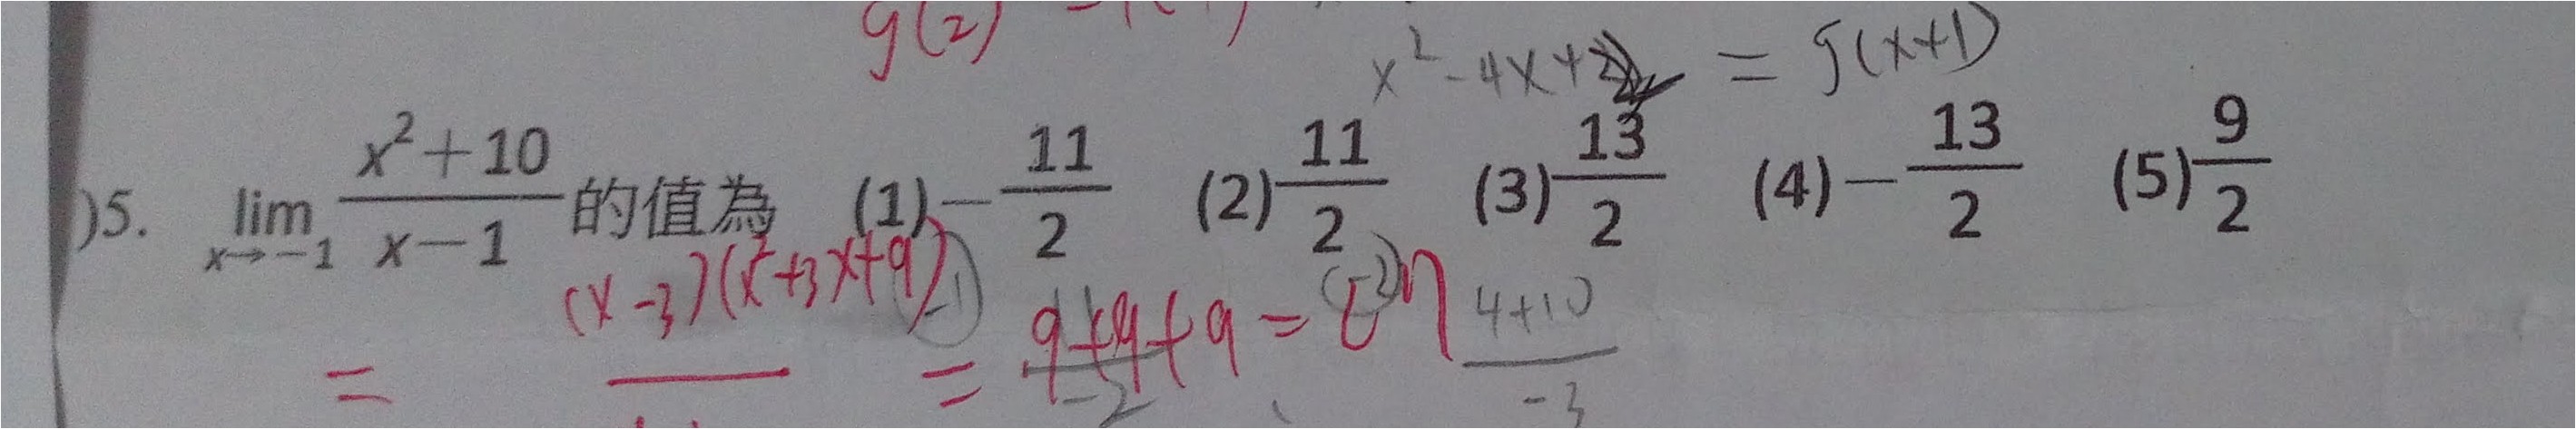 g(2)
x² - 4x + = g(x+1)
)5. lim x→-1 (x²+10)/(x-1) 的值為 (1) -11/2 (2) 11/2 (3) 13/2 (4) -13/2 (5) 9/2
(x-3)(x²+3x+9) (-1) 11 (-2) 4+10
= = 9+9+9 = 27
-2 -3